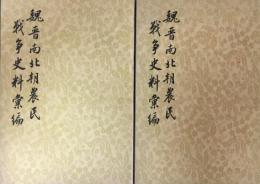 魏晋南北朝农民
战争史料汇编
魏晋南北朝农民
战争史料汇编